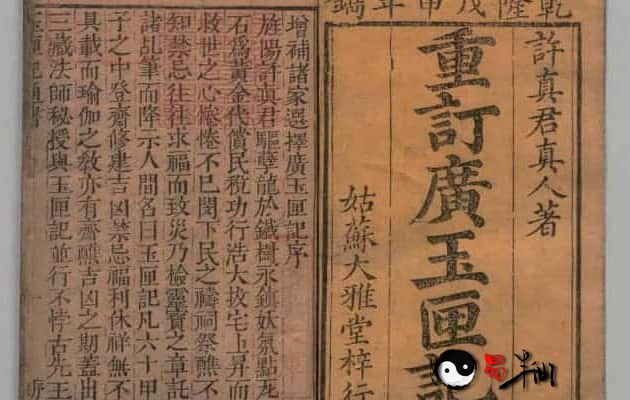 乾隆戊申年
許真君真人著
重訂廣玉匣記
姑蘇大雅堂梓行
增補諸家選擇廣玉匣記序
旌陽許真君驅孽龍於鐵樹永鎮妖氛點
石爲黃金代償民稅功行浩大拔宅上昇而
救世之心惓惓不已閔下民之禱祠祭醮不
知禁忌往往求福而致災乃檢靈寶之章託
諸乩筆而降示人間名曰玉匣記凡六十甲
子之中登齋修建吉凶禁忌福利休祥無不
具載而瑜伽之教亦有齋醮吉凶之期蓋出
三藏法師秘授與玉匣記並行不悖古先王
玉匣記通書
易半仙